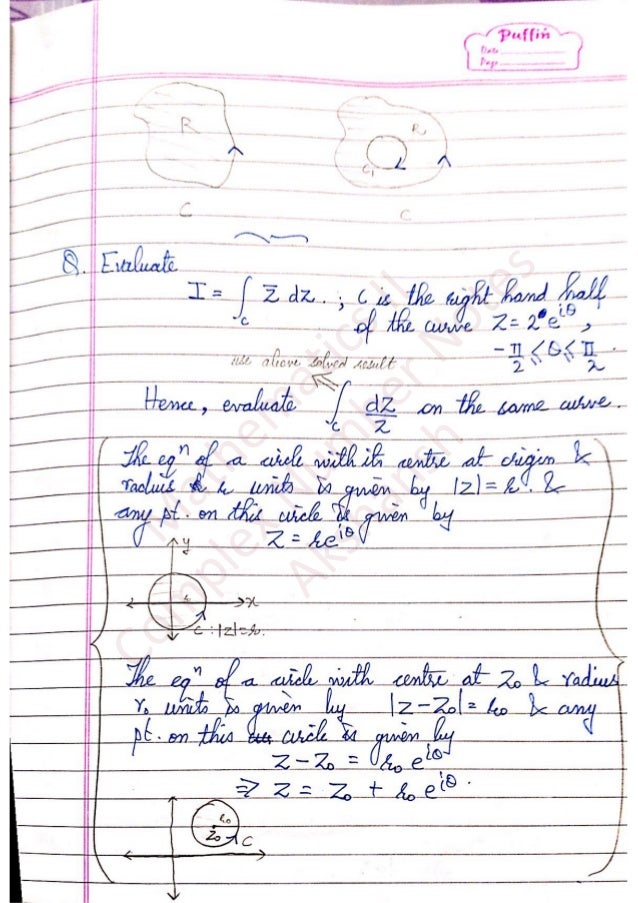 Puffin
Date
Page
R
R
C1
C
C
Q. Evaluate
I = ∫c z̄ dz. ; C is the right hand half
of the curve z = 2 e^{iθ},
-π/2 ≤ θ ≤ π/2.
use above solved result
Hence, evaluate ∫c dz/z on the same curve.
The eqⁿ of a circle with its centre at origin &
radius r units is given by |z| = r. &
any pt. on this circle is given by
z = re^{iθ}
y
r
x
C : |z| = r.
The eqⁿ of a circle with centre at z₀ & radius
r₀ units is given by |z - z₀| = r₀ & any
pt. on this circle is given by
z - z₀ = r₀ e^{iθ}
⇒ z = z₀ + r₀ e^{iθ}.
r₀
z₀
C
Mathematics II
Complex Number Notes